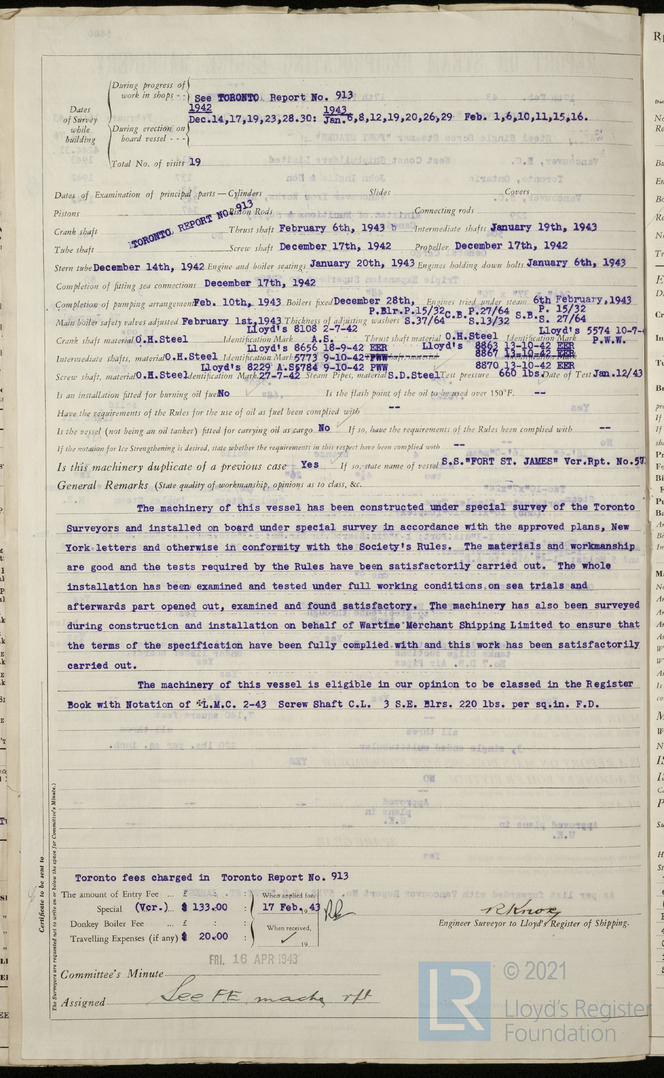 Dates of Survey while building
During progress of work in shops - - See TORONTO Report No. 913
1942 1943
During erection on board vessel - - - Dec.14,17,19,23,28.30: Jan.6,8,12,19,20,26,29 Feb. 1,6,10,11,15,16.
Total No. of visits 19
Dates of Examination of principal parts—Cylinders Slides Covers
Pistons Piston Rods Connecting rods
TORONTO REPORT NO. 913
Crank shaft Thrust shaft February 6th, 1943 Intermediate shafts January 19th, 1943
Tube shaft Screw shaft December 17th, 1942 Propeller December 17th, 1942
Stern tube December 14th, 1942 Engine and boiler seatings January 20th, 1943 Engines holding down bolts January 6th, 1943
Completion of fitting sea connections December 17th, 1942
Completion of pumping arrangements Feb. 10th, 1943 Boilers fixed December 28th, Engines tried under steam 6th February,1943
P.Blr.P.15/32 C.B.P.27/64 S.B. P. 15/32
Main boiler safety valves adjusted February 1st,1943 Thickness of adjusting washers S.37/64 S.13/32 S. 27/64
Lloyd's 8108 2-7-42 Lloyd's 5574 10-7-
Crank shaft material O.H.Steel Identification Mark A.S. Thrust shaft material O.H.Steel Identification Mark P.W.W.
Lloyd's 8656 18-9-42 EER Lloyd's 8863 13-10-42 EER
Intermediate shafts, material O.H.Steel Identification Marks 5773 9-10-42 PWW 8867 13-10-42 EER
Lloyd's 8229 A.S. 5784 9-10-42 PWW 8870 13-10-42 EER
Screw shaft, material O.H.Steel Identification Mark 27-7-42 Steam Pipes, material S.D.Steel Test pressure 660 lbs. Date of Test Jan.12/43
Is an installation fitted for burning oil fuel No Is the flash point of the oil to be used over 150°F. --
Have the requirements of the Rules for the use of oil as fuel been complied with --
Is the vessel (not being an oil tanker) fitted for carrying oil as cargo No If so, have the requirements of the Rules been complied with --
If the notation for Ice Strengthening is desired, state whether the requirements in this respect have been complied with --
Is this machinery duplicate of a previous case Yes If so, state name of vessel S.S."FORT ST. JAMES" Vcr.Rpt. No.57
General Remarks (State quality of workmanship, opinions as to class, &c.
The machinery of this vessel has been constructed under special survey of the Toronto
Surveyors and installed on board under special survey in accordance with the approved plans, New
York letters and otherwise in conformity with the Society's Rules. The materials and workmanship
are good and the tests required by the Rules have been satisfactorily carried out. The whole
installation has been examined and tested under full working conditions on sea trials and
afterwards part opened out, examined and found satisfactory. The machinery has also been surveyed
during construction and installation on behalf of Wartime Merchant Shipping Limited to ensure that
the terms of the specification have been fully complied with and this work has been satisfactorily
carried out.
The machinery of this vessel is eligible in our opinion to be classed in the Register
Book with Notation of L.M.C. 2-43 Screw Shaft C.L. 3 S.E. Blrs. 220 lbs. per sq.in. F.D.
Certificate to be sent to
The Surveyors are requested not to write on or below the space for Committee's Minute.
Toronto fees charged in Toronto Report No. 913
The amount of Entry Fee ... £ : : When applied for
Special (Vcr.).. $ 133.00 : 17 Feb. 1943
Donkey Boiler Fee ... £ : : When received,
Travelling Expenses (if any) $ 20.00 : 19
R Knox
Engineer Surveyor to Lloyd's Register of Shipping.
FRI. 16 APR 1943
Committee's Minute
Assigned See FE machy rpt
LR © 2021
Lloyd's Register
Foundation